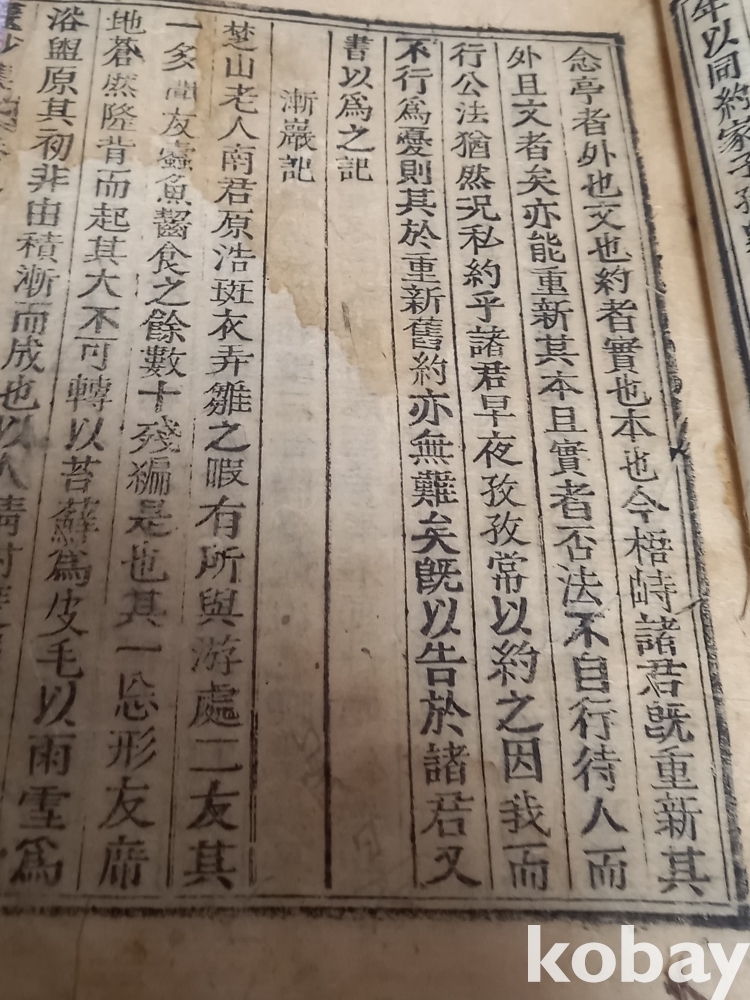 年以同約家子孫
念亭者外也文也約者實也本也今梧峙諸君旣重新其
外且文者矣亦能重新其本且實者否法不自行待人而
行公法猶然况私約乎諸君早夜孜孜常以約之因我而
不行爲憂則其於重新舊約亦無難矣旣以告於諸君又
書以爲之記
漸巖記
楚山老人南君原浩斑衣弄雛之暇有所與游處二友其
一多聞友蠹魚齧食之餘數十殘編是也其一忘形友席
地蒼然隆背而起其大不可轉以苔蘚爲皮毛以雨雪爲
浴盥原其初非由積漸而成也以人情
kobay